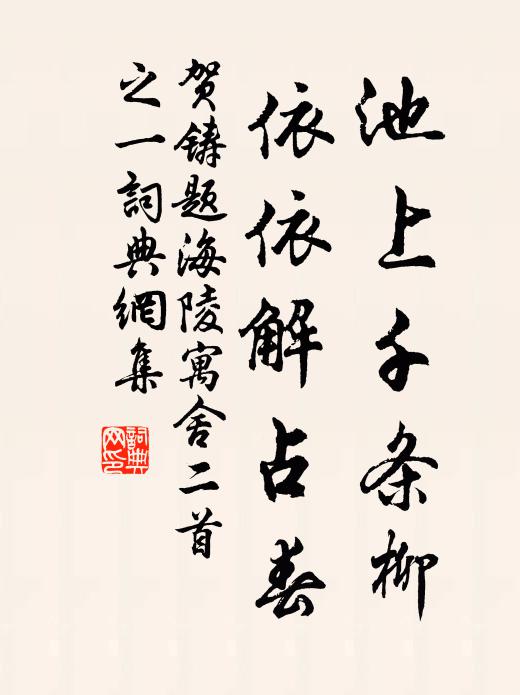 池上千条柳
依依解占春
贺铸题海陵寓舍二首
之一詞典網集
詞典
网印